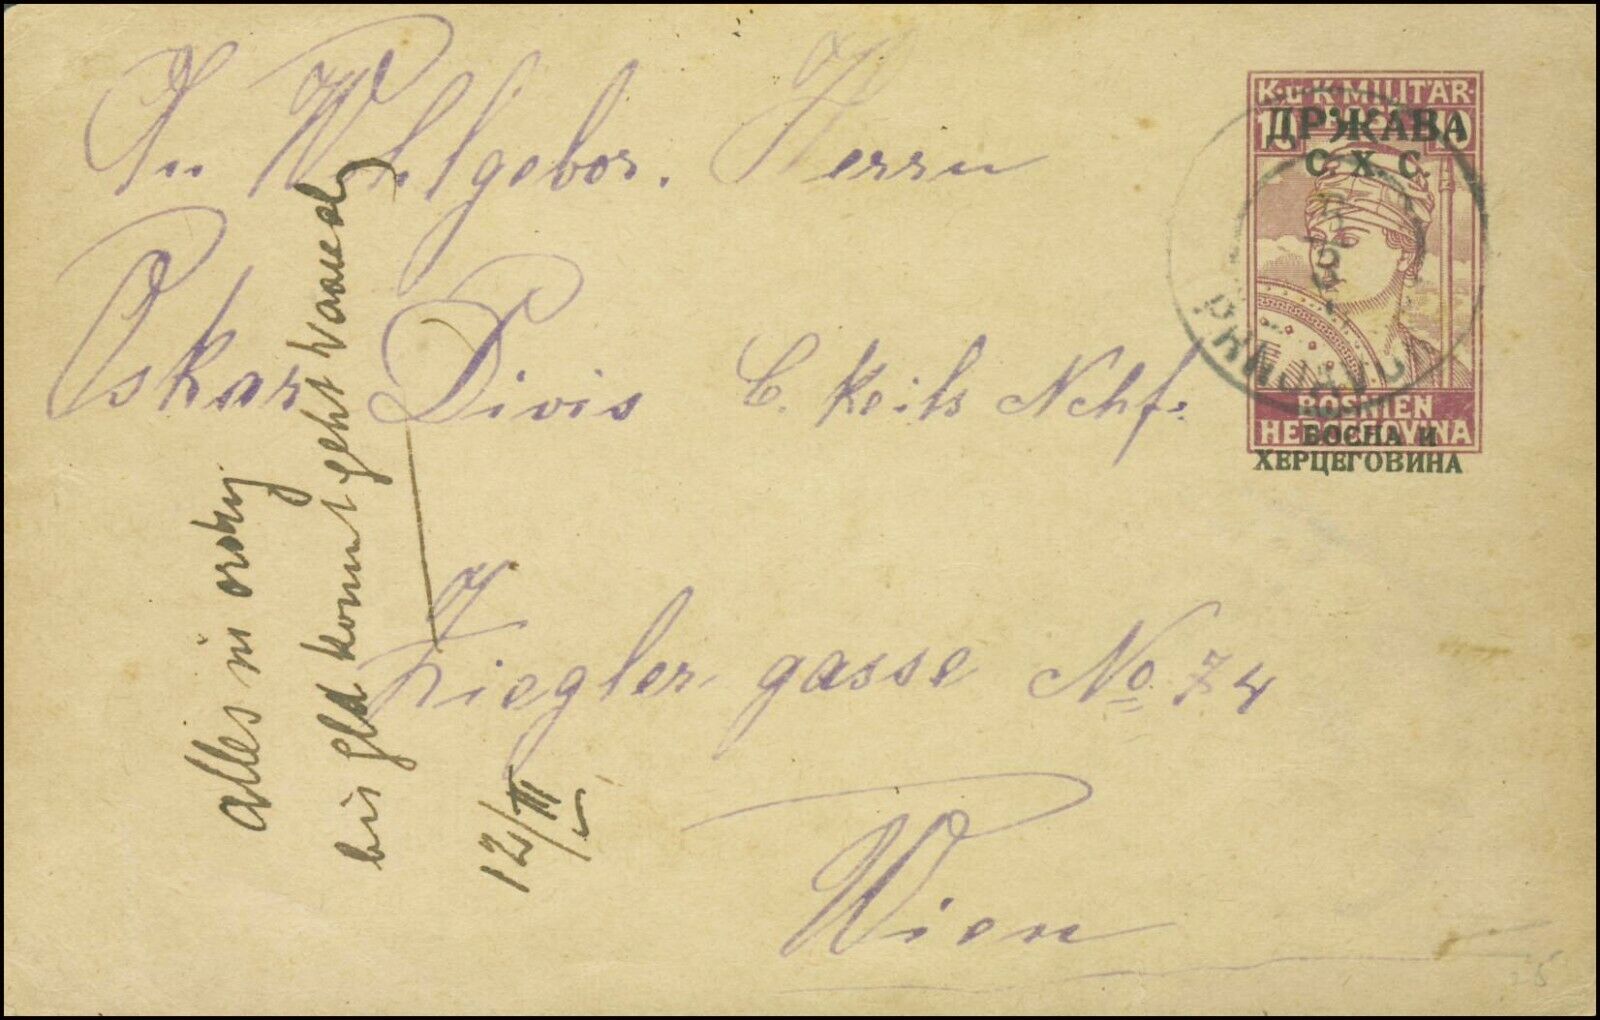 Sr Wohlgebor. Herrn
Oskar Divis C. Keils Nchf.
Ziegler gasse No. 74
Wien
alles in
bis geld kommt geht
12/III
K.u.K. MILITÄR
10 POST 10
ДРЖАВА
С. Х. С.
BOSNIEN
HERCEGOVINA
БОСНА И
ХЕРЦЕГОВИНА
25